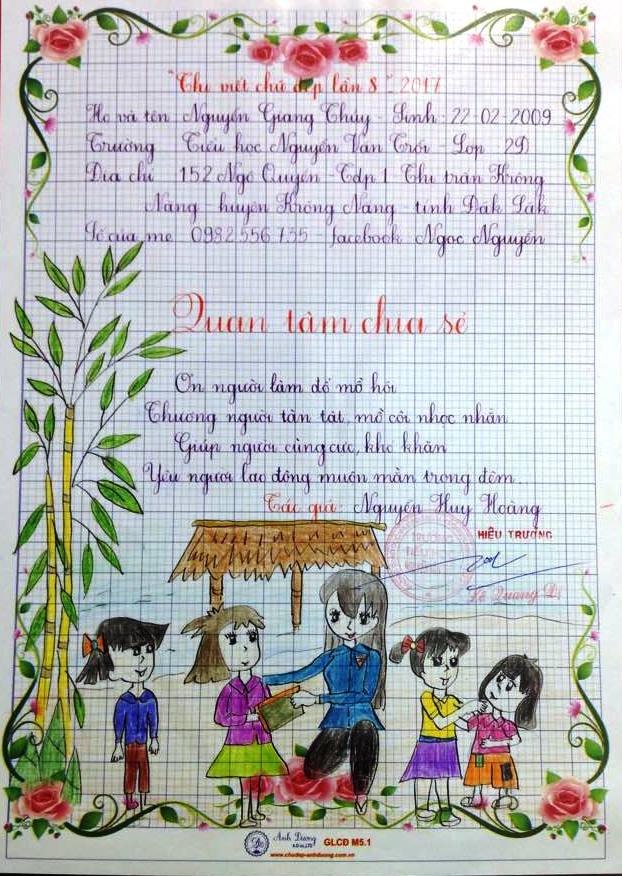 "Thi viết chữ đẹp lần 8" 2017
Họ và tên Nguyễn Giang Thùy - Sinh - 22 - 02 - 2009
Trường Tiểu học Nguyễn Văn Trỗi - Lớp 2D
Địa chỉ 152 Ngô Quyền - Tdp 1 Thị trấn Krông
Năng huyện Krông Năng tỉnh Đắk Lắk
Số của mẹ 0982 556 735 - facebook Ngọc Nguyễn
Quan tâm chia sẻ
Ơn người làm đổ mồ hôi
Thương người tàn tật, mồ côi nhọc nhằn
Giúp người cùng cực, khó khăn
Yêu người lao động muôn mằn trong đêm.
Tác giả: Nguyễn Huy Hoàng
HIỆU TRƯỞNG
Lê Quang
Ánh Dương
GLCĐ M5.1
www.chudep-anhduong.com.vn